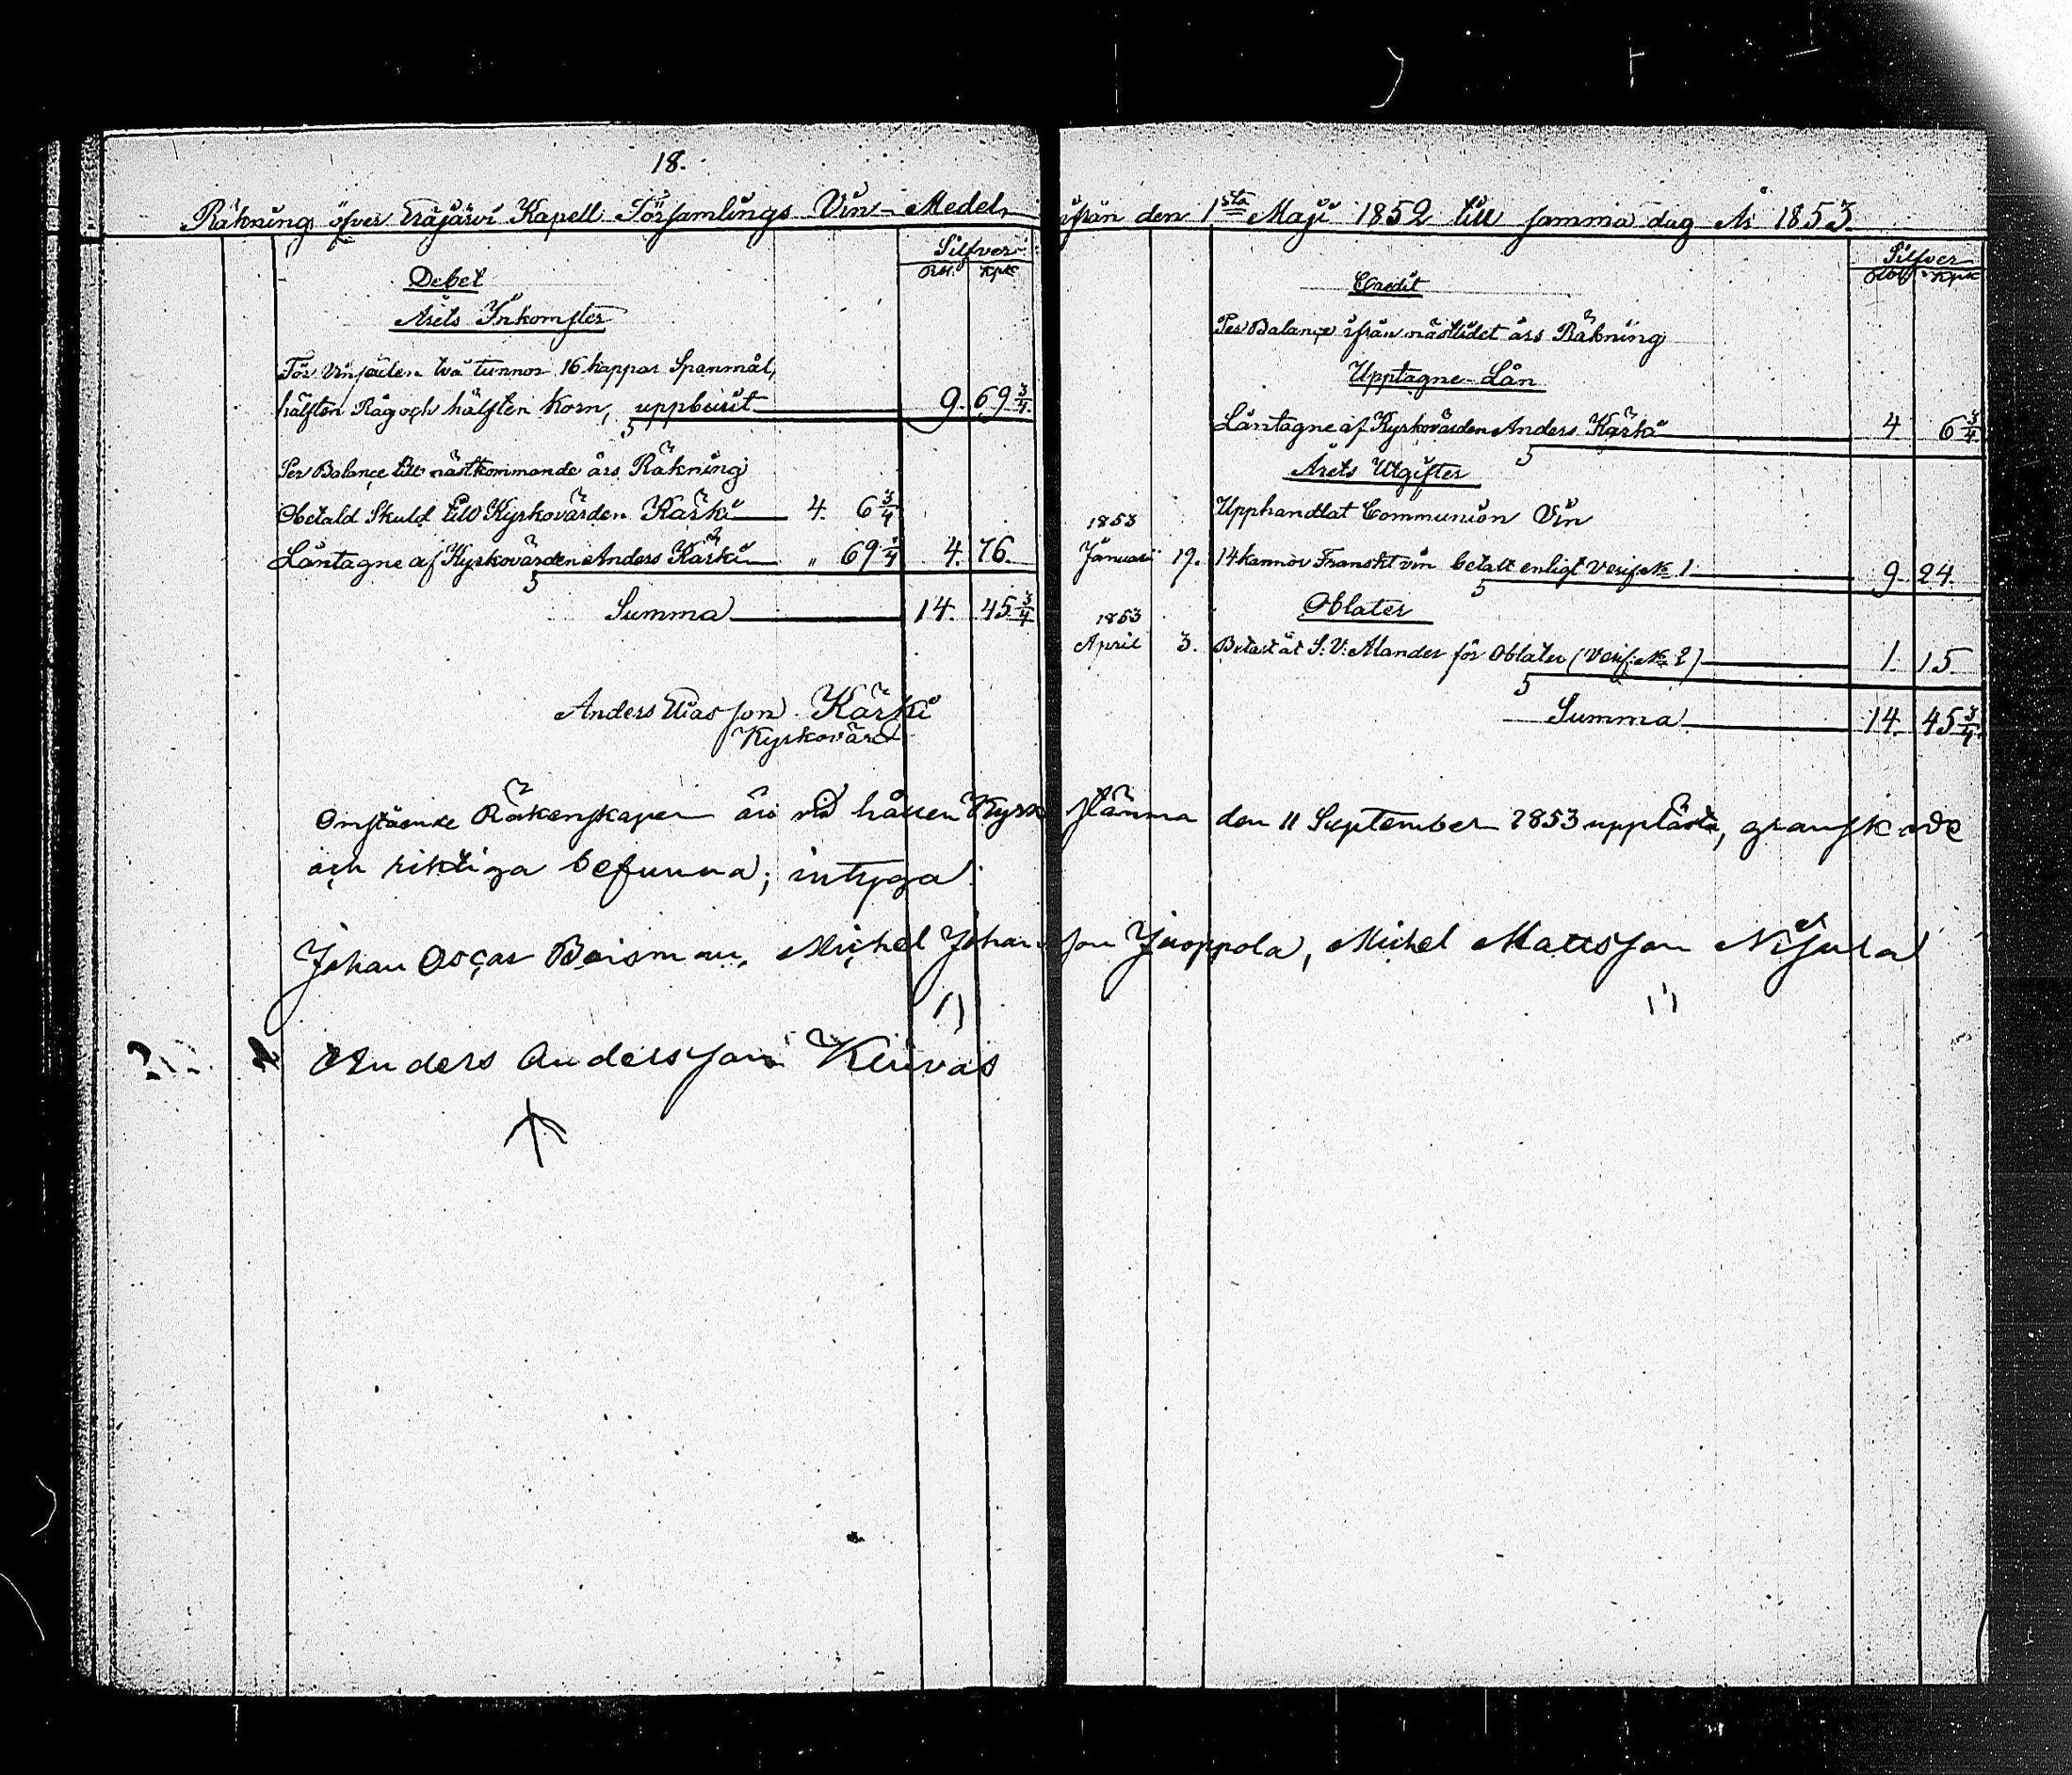 18.
Räkning öfver Eräjärvi Kapell Församlings Vin-Medel,
Silfver
Rbl. Kpk
Debet
Årets Inkomster
För Vinsäden två tunnor 16 kappar Spanmål,
hälften Råg och hälften Korn, uppburit 9. 69 3/4.
Per Balançe till nästkommande års Räkning
Obetald Skuld till Kyrkovärden Kärki 4. 6 3/4
Låntagne af Kyrkovärden Anders Kärki " 69 1/4 4. 76.
Summa 14. 45 3/4
Anders Eliasson Kärki
Kyrkovärd
ifrån den 1sta Maji 1852 till samma dag År 1853.
Silfver
Rbl Kpk
Credit
Per Balançe ifrån nästlidet års Räkning
Upptagne Lån
Låntagne af Kyrkovärden Anders Kärki 4 6 3/4
Årets Utgifter
Upphandlat Communion Vin
1853
Januarii 19. 14 kannor Franskt vin betalt enligt Verif. No 1 9. 24.
Oblater
1853
April 3. Betalt åt S: V: Alander för Oblater (Verif: No 2) 1. 15
Summa 14. 45 3/4.
Omstående Räkenskaper äro vid hållen Kyrkostämma den 11 September 1853 upplästa, granskade
och riktiga befunna; intyga:
Johan Oscar Boisman, Michel Johansson Jaoppola, Michel Mattsson
Anders Andersson Keuvas